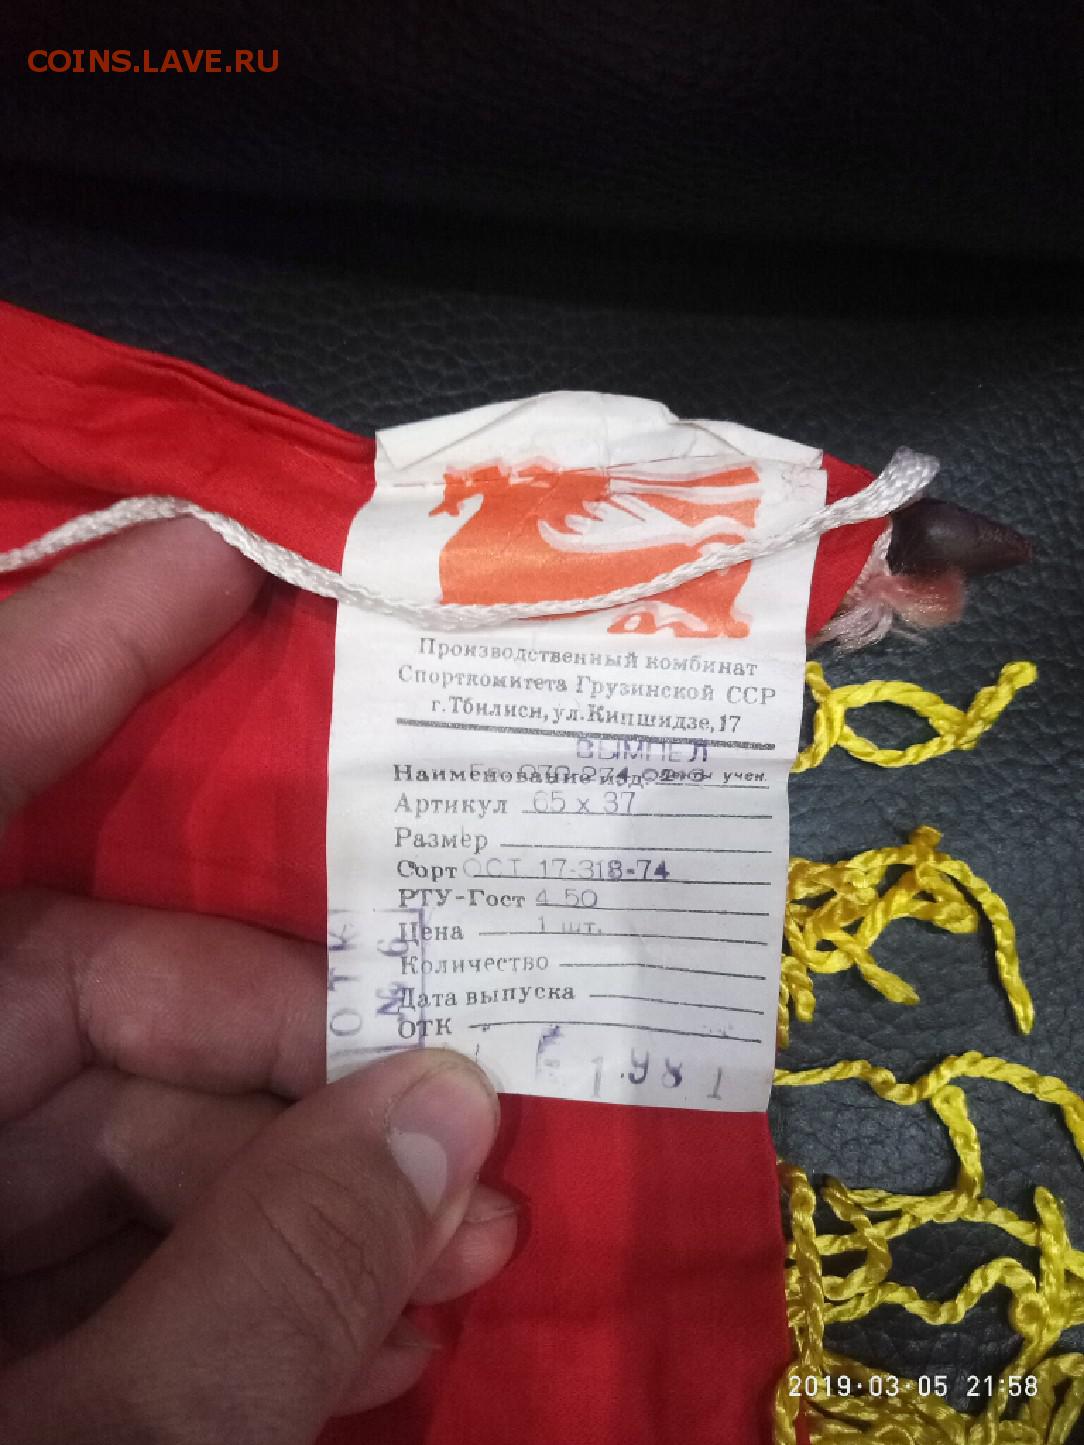 COINS.LAVE.RU
Производственный комбинат
Спорткомитета Грузинской ССР
г.Тбилиси, ул.Кипшидзе, 17
ВЫМПЕЛ
Наименование изд.
Артикул 65 х 37
Размер
Сорт ОСТ 17-318-74
РТУ-Гост 4.50
Цена 1 шт.
Количество
Дата выпуска
ОТК
ОТК
№ 6
1981
2019·03·05 21:58